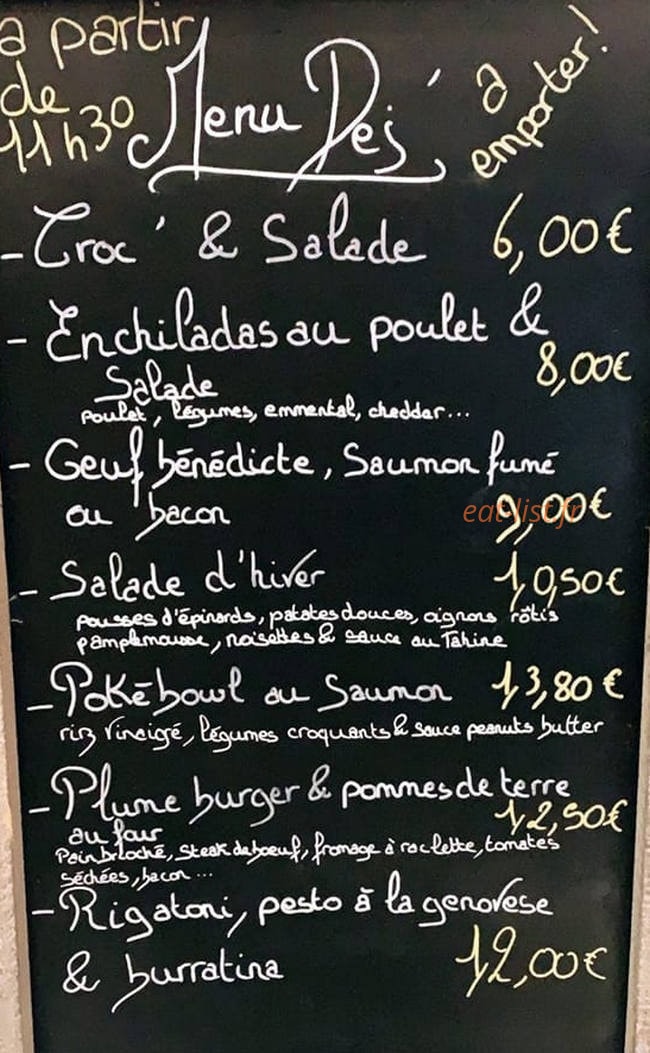 a partir
de
11h30
Menu Dej'
à
emporter!
- Croc' & Salade 6,00€
- Enchiladas au poulet &
Salade 8,00€
poulet, légumes, emmental, cheddar...
- Oeuf bénédicte, Saumon fumé
ou bacon 9,00€
eat-list.fr
- Salade d'hiver 10,50€
pousses d'épinards, patates douces, oignons rôtis
pamplemousse, noisettes & sauce au Tahine
- Poké bowl au Saumon 13,80€
riz vinaigré, légumes croquants & sauce peanuts butter
- Plume burger & pommes de terre
au four 12,50€
Pain brioché, steak de boeuf, fromage à raclette, tomates
séchées, bacon...
- Rigatoni, pesto à la genovese
& burratina 12,00€